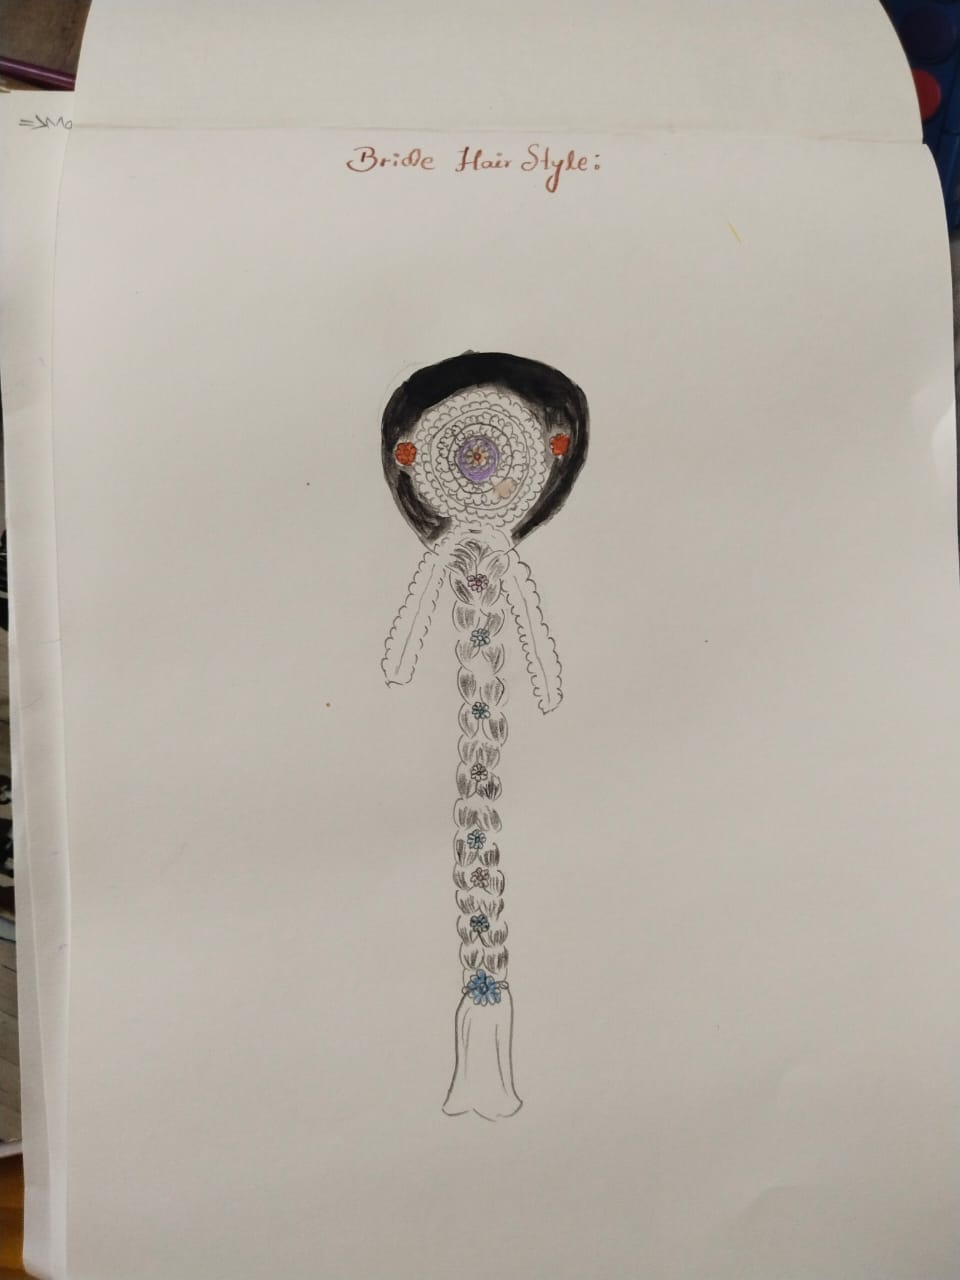 Bride Hair Style: